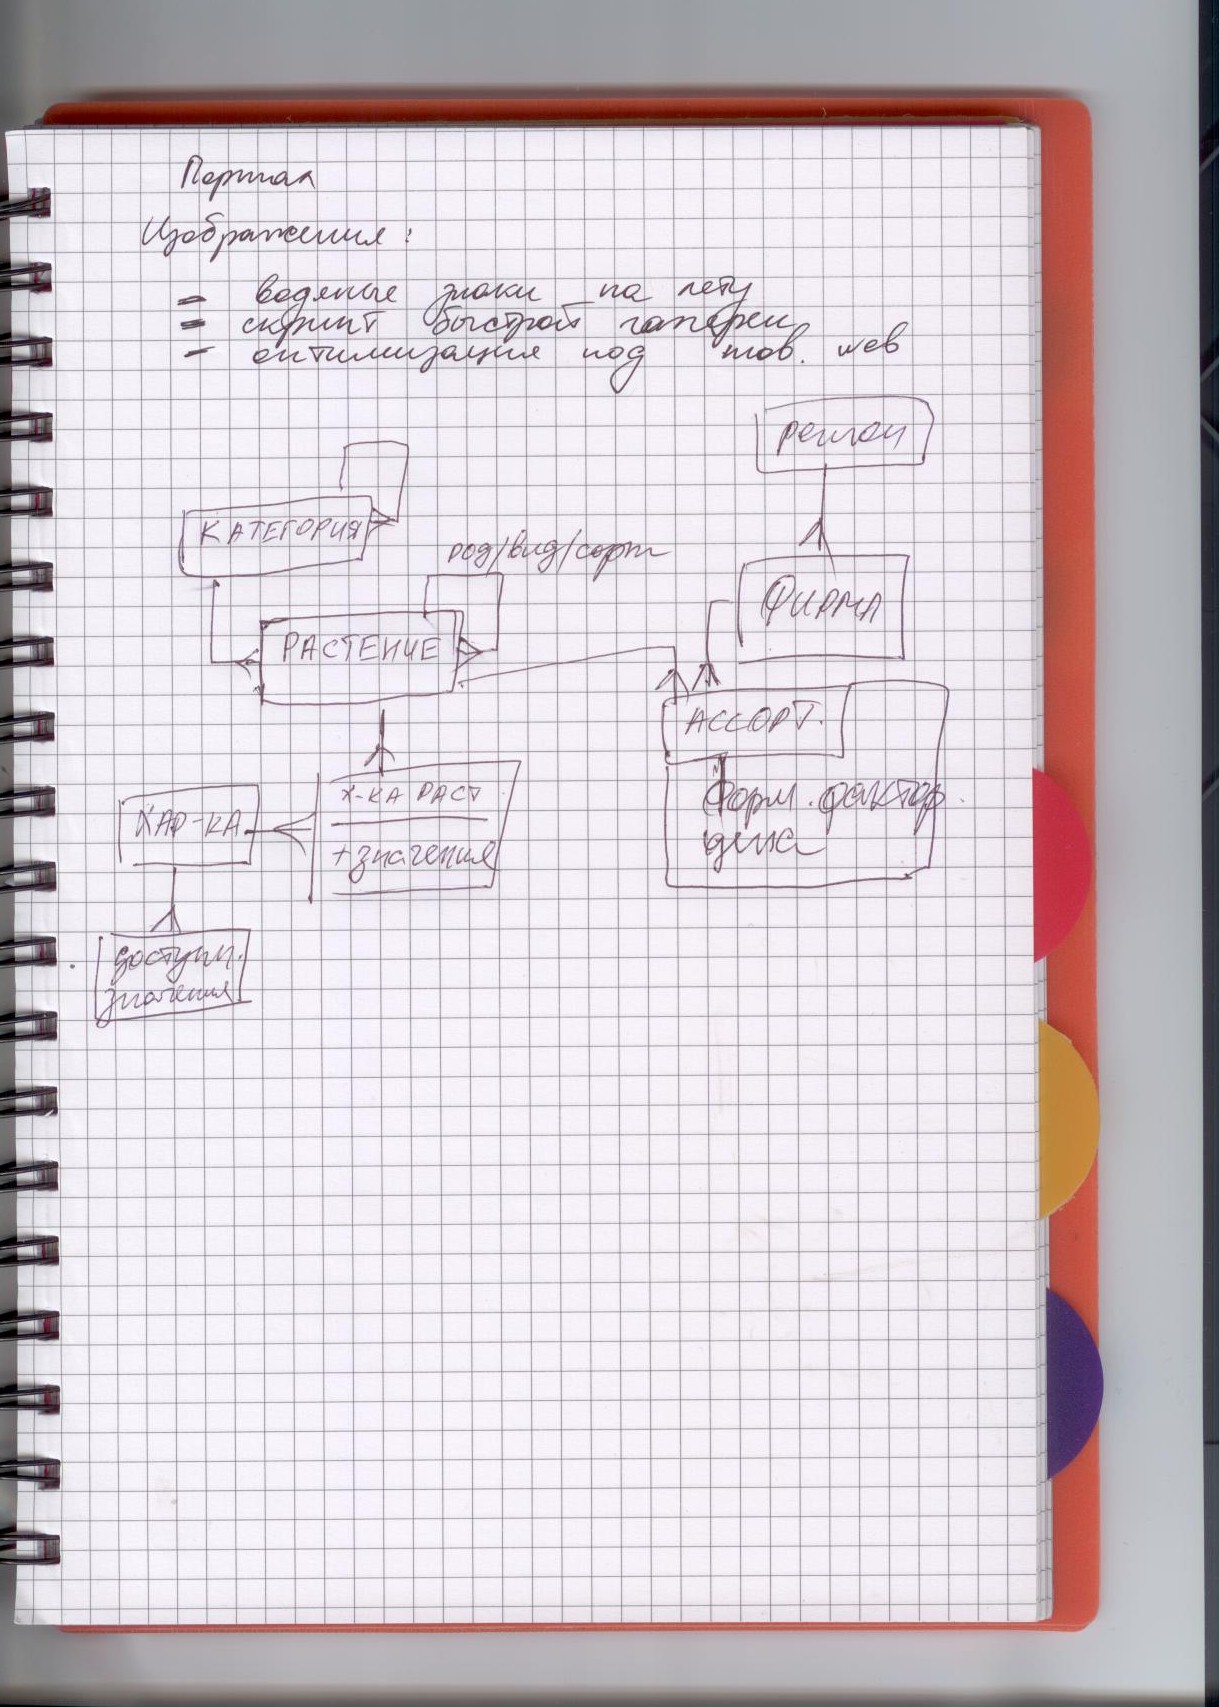 Портал
Изображения:
- водяные знаки на лету
- скрипт быстрой галереи
- оптимизация под web
регион
КАТЕГОРИЯ
род/вид/сорт
ФИРМА
РАСТЕНИЕ
АССОРТ.
Х-КА РАСТ
+ значения
ХАР-КА
Форм. фактор.
цена
доступн.
значения